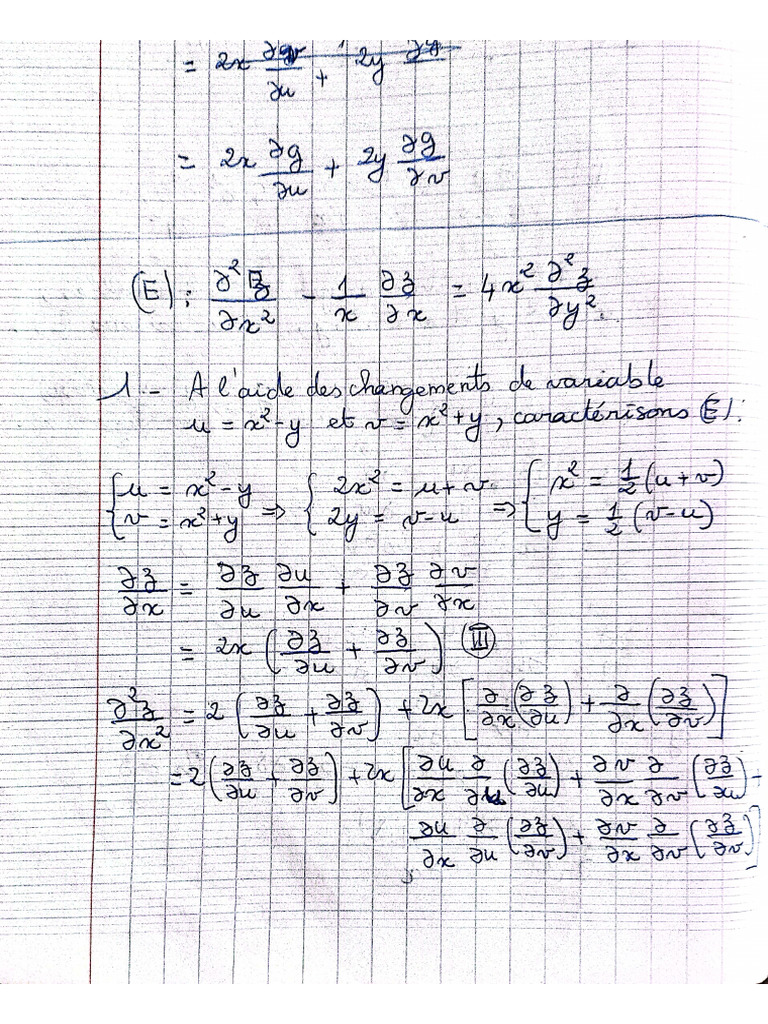 = 2x ∂g/∂u + 2y
= 2x ∂g/∂u + 2y ∂g/∂v
(E) : ∂²z/∂x² - 1/x ∂z/∂x = 4x² ∂²z/∂y².
1 - A l'aide des changements de variable
u = x²-y et v = x²+y, caractérisons (E) :
{u = x²-y ; v = x²+y => {2x² = u+v ; 2y = v-u => {x² = 1/2 (u+v) ; y = 1/2 (v-u)
∂z/∂x = ∂z/∂u ∂u/∂x + ∂z/∂v ∂v/∂x
= 2x (∂z/∂u + ∂z/∂v) (III)
∂²z/∂x² = 2 (∂z/∂u + ∂z/∂v) + 2x [∂/∂x (∂z/∂u) + ∂/∂x (∂z/∂v)]
= 2 (∂z/∂u + ∂z/∂v) + 2x [∂u/∂x ∂/∂u (∂z/∂u) + ∂v/∂x ∂/∂v (∂z/∂u) +
∂u/∂x ∂/∂u (∂z/∂v) + ∂v/∂x ∂/∂v (∂z/∂v)]